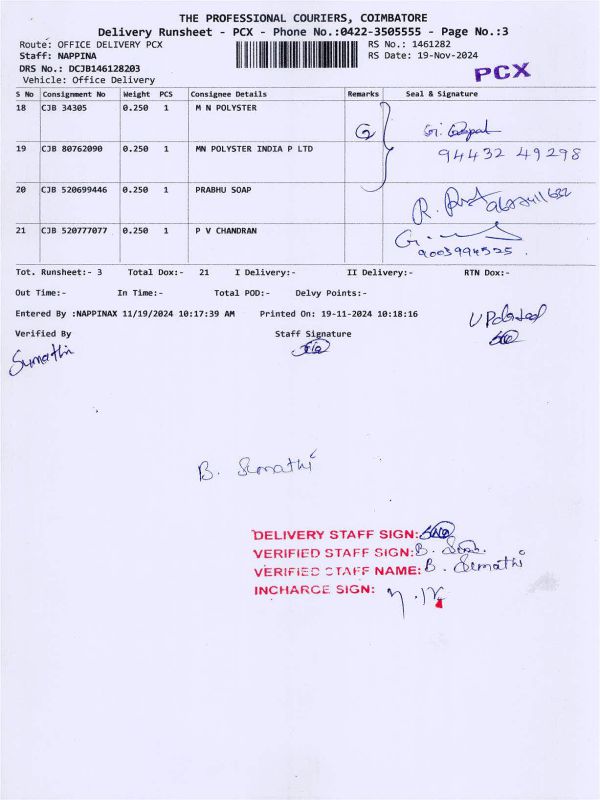 THE PROFESSIONAL COURIERS, COIMBATORE
Delivery Runsheet - PCX - Phone No.:0422-3505555 - Page No.:3
Route: OFFICE DELIVERY PCX RS No.: 1461282
Staff: NAPPINA RS Date: 19-Nov-2024
DRS No.: DCJB146128203
Vehicle: Office Delivery PCX
S No Consignment No Weight PCS Consignee Details Remarks Seal & Signature
18 CJB 34305 0.250 1 M N POLYSTER
19 CJB 80762090 0.250 1 MN POLYSTER INDIA P LTD 94432 49298
20 CJB 520699446 0.250 1 PRABHU SOAP
21 CJB 520777077 0.250 1 P V CHANDRAN
9003994525
Tot. Runsheet:- 3 Total Dox:- 21 I Delivery:- II Delivery:- RTN Dox:-
Out Time:- In Time:- Total POD:- Delvy Points:-
Entered By :NAPPINAX 11/19/2024 10:17:39 AM Printed On: 19-11-2024 10:18:16
Updated
Verified By Staff Signature
Sumathi
B. Sumathi
DELIVERY STAFF SIGN:
VERIFIED STAFF SIGN: B.
VERIFIED STAFF NAME: B. Sumathi
INCHARGE SIGN: